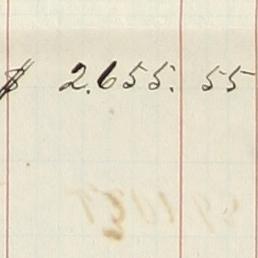 $ 2.655. 55